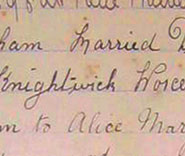 ham Married
Knightwick Worce
m to Alice Mar